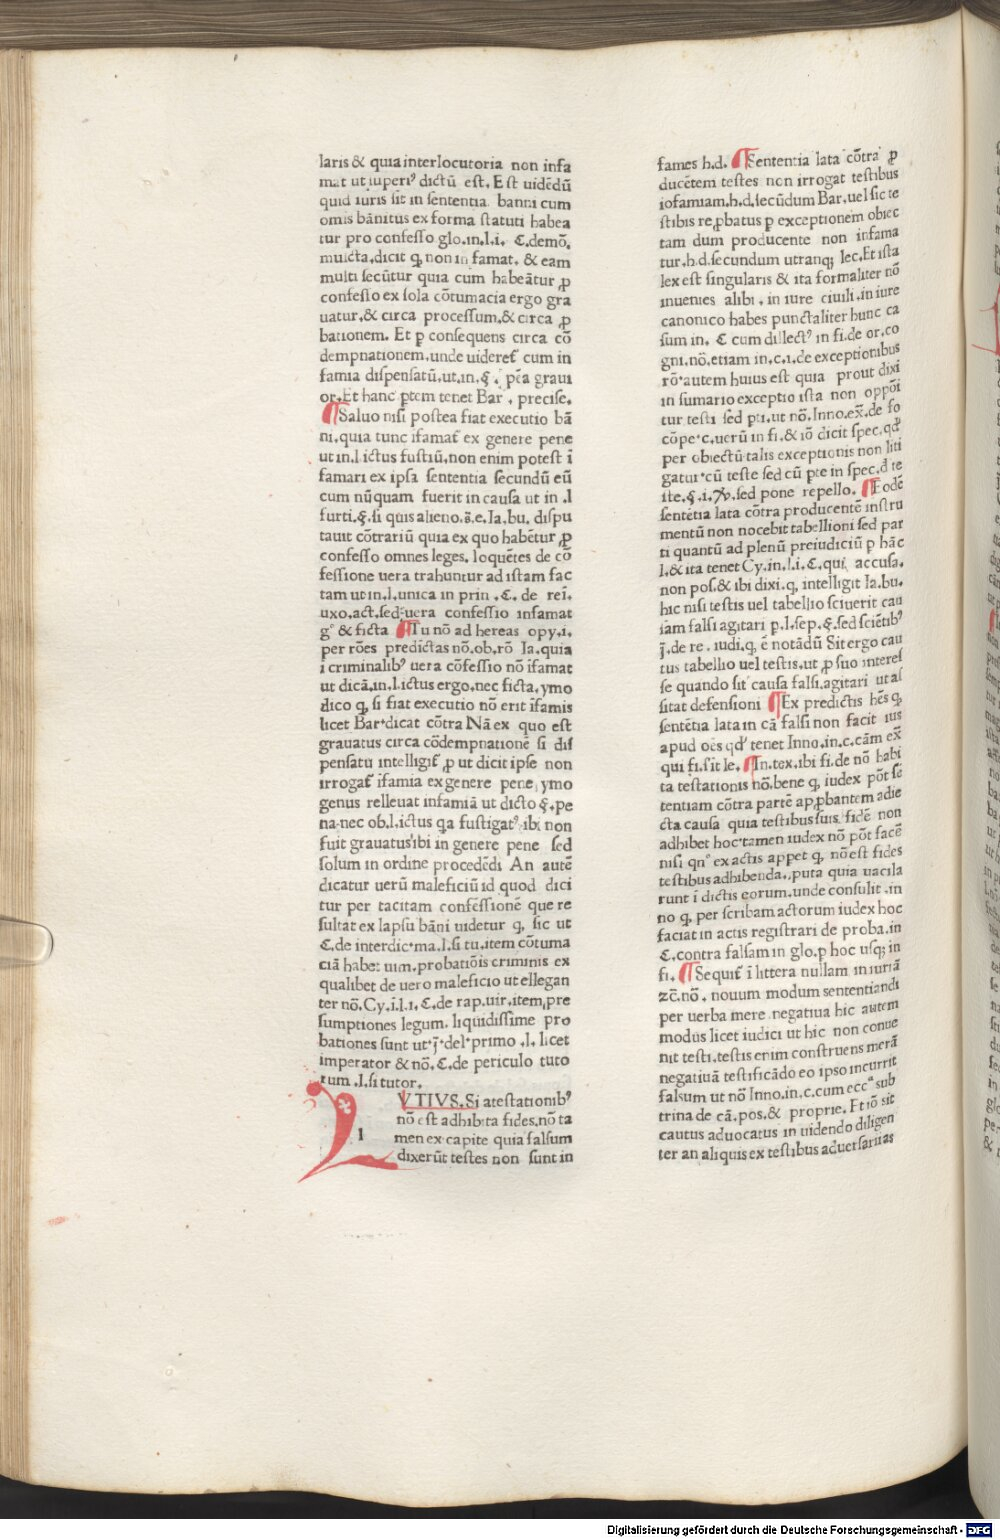 laris & quia interlocutoria non infa
mat ut superi⁹ dictū est. Est uidēdū
quid iuris sit in sententia banni cum
omīs bānitus ex forma statuti habea
tur pro confesso glo.in.l.i. C.demō.
mulcta.dicit ꝙ non infamat. & eam
multi secūtur quia cum habeātur ꝓ
confesso ex sola cōtumacia ergo gra
uatur.& circa processum.& circa ꝓ
bationem. Et ꝑ consequens circa cō
dempnationem.unde uideret cum in
famia dispensatū.ut.in.§. pēa graui
or.Et hanc ptem tenet Bar. precise.
¶Saluo nisi postea fiat executio bā
ni.quia tunc ifamat̄ ex genere pene
ut in.l ictus fustiū.non enim potest ī
famari ex ipsa sententia secundū eū
cum nūquam fuerit in causa ut in .l
furti.§.si quis alieno.ā.e.Ia.bu. dispu
tauit cōtrariū quia ex quo habētur ꝓ
confesso omnes leges. loquētes de cō
fessione uera trahuntur ad istam fac
tam ut in.l.unica in prin .C. de rei.
uxo.act.sed uera confessio infamat
g° & ficta ¶Tu nō ad hereas opy.i.
per rōes predictas nō.ob.rō Ia.quia
i criminalib⁹ uera cōfessio nō ifamat
ut dicā.in.l.ictus ergo.nec ficta.ymo
dico ꝙ si fiat executio nō erit īfamis
licet Bar·dicat cōtra Nā ex quo est
grauatus circa cōdempnationē si dis
pensatū intelligit̄ ꝓ ut dicit ipse non
irrogat̄ ifamia ex genere pene ymo
genus relleuat infamiā ut dicto §.pe
na·nec ob.l.ictus qa fustigat⁹ ibi non
fuit grauatus ibi in genere pene sed
solum in ordine procedēdi An autē
dicatur uerū maleficiū id quod dici
tur per tacitam confessionē que re
sultat ex lapsu bāni uidetur ꝙ sic ut
C.de interdic·ma.l.si tu.item cōtuma
ciā habet uim.probatiōis criminis ex
qualibet de uero maleficio ut ellegan
ter nō.Cy.i.l.i. C.de rap.uir.item.pre
sumptiones legum. liquidissime pro
bationes sunt ut·j̄·del·primo .l. licet
imperator & nō. C.de periculo tuto
rum .l.si tutor.
l
VTIVS.Si atestationib⁹
nō est adhibita fides.nō ta
men ex capite quia falsum
dixerūt testes non sunt in
fames h.d. ¶Sententia lata cōtra ꝓ
ducētem testes non irrogat testibus
iofamiam.h.d.secūdum Bar.uel sic te
stibis reꝓbatus ꝑ exceptionem obiec
tam dum producente non infama
tur.h.d.secundum utranqꝫ lec.Et ista
lex est singularis & ita formaliter nō
inuenies alibi . in iure ciuili.in iure
canonico habes punctaliter hunc ca
sum in. C cum dillect⁹ in fi.de or.co
gni.nō.etiam in.c.i.de exceptionibus
rō·autem huius est quia prout dixi
in sumario exceptio ista non oppōi
tur testi sed pti.ut nō.Inno.ex̄.de fo
cōpe·c.uerū in fi.& iō dicit spec.qd̄
per obiectū talis exceptionis non liti
gatur·cū teste sed cū pte in spec.d te
ste.§.i.℣.sed pone repello. ¶Eodē
sentētia lata cōtra producentē instru
mentū non nocebit tabellioni sed par
ti quantū ad plenū preiudiciū ꝑ hāc
l.& ita tenet Cy.in.l.i.C.qui accusa.
non pos.& ibi dixi.ꝙ intelligit Ia.bu.
hic nisi testis uel tabellio sciuerit cau
iam falsi agitari ꝑ.l.sep.§.sed sciētib⁹
j̄.de re . iudi.ꝙ ē notādū Sit ergo cau
tus tabellio uel testis.ut ꝓ suo interes
se quando sit causa falsi.agitari ut as
sitat defensioni ¶Ex predictis hēs ꝙ
sentētia lata in cā falsi non facit ius
apud oēs qd̄ tenet Inno.in.c.cām ex̄
qui fi.sīt le. ¶In.tex.ibi fi.de nō habi
ta testationis nō.bene ꝙ iudex pōt sē
tentiam cōtra partē apꝓbantem adie
cta causa quia testibus suis fidē non
adhibet hoc·tamen iudex nō pōt facē
nisi qn° ex actis appet ꝙ nō est fides
testibus adhibenda..puta quia uacila
runt ī dictis eorum.unde consulit .in
no ꝙ per scribam actorum iudex hoc
faciat in actis registrari de proba.in
C.contra falsam in glo.ꝑ hoc usqꝫ in
fi. ¶Sequit̄ ī littera nullam iniuriā
zc̄.nō. nouum modum sententiandi
per uerba mere negatiua hic autem
modus licet iudici ut hic non conue
nit testi.testis enim construens merā
negatiuā testificādo eo ipso incurrit
falsum ut nō Inno.in.c.cum eccᵃ sub
trina de cā.pos.& proprie. Et iō sit
cautus aduocatus in uidendo diligen
ter an aliquis ex testibus aduersarii as
Digitalisierung gefördert durch die Deutsche Forschungsgemeinschaft - DFG